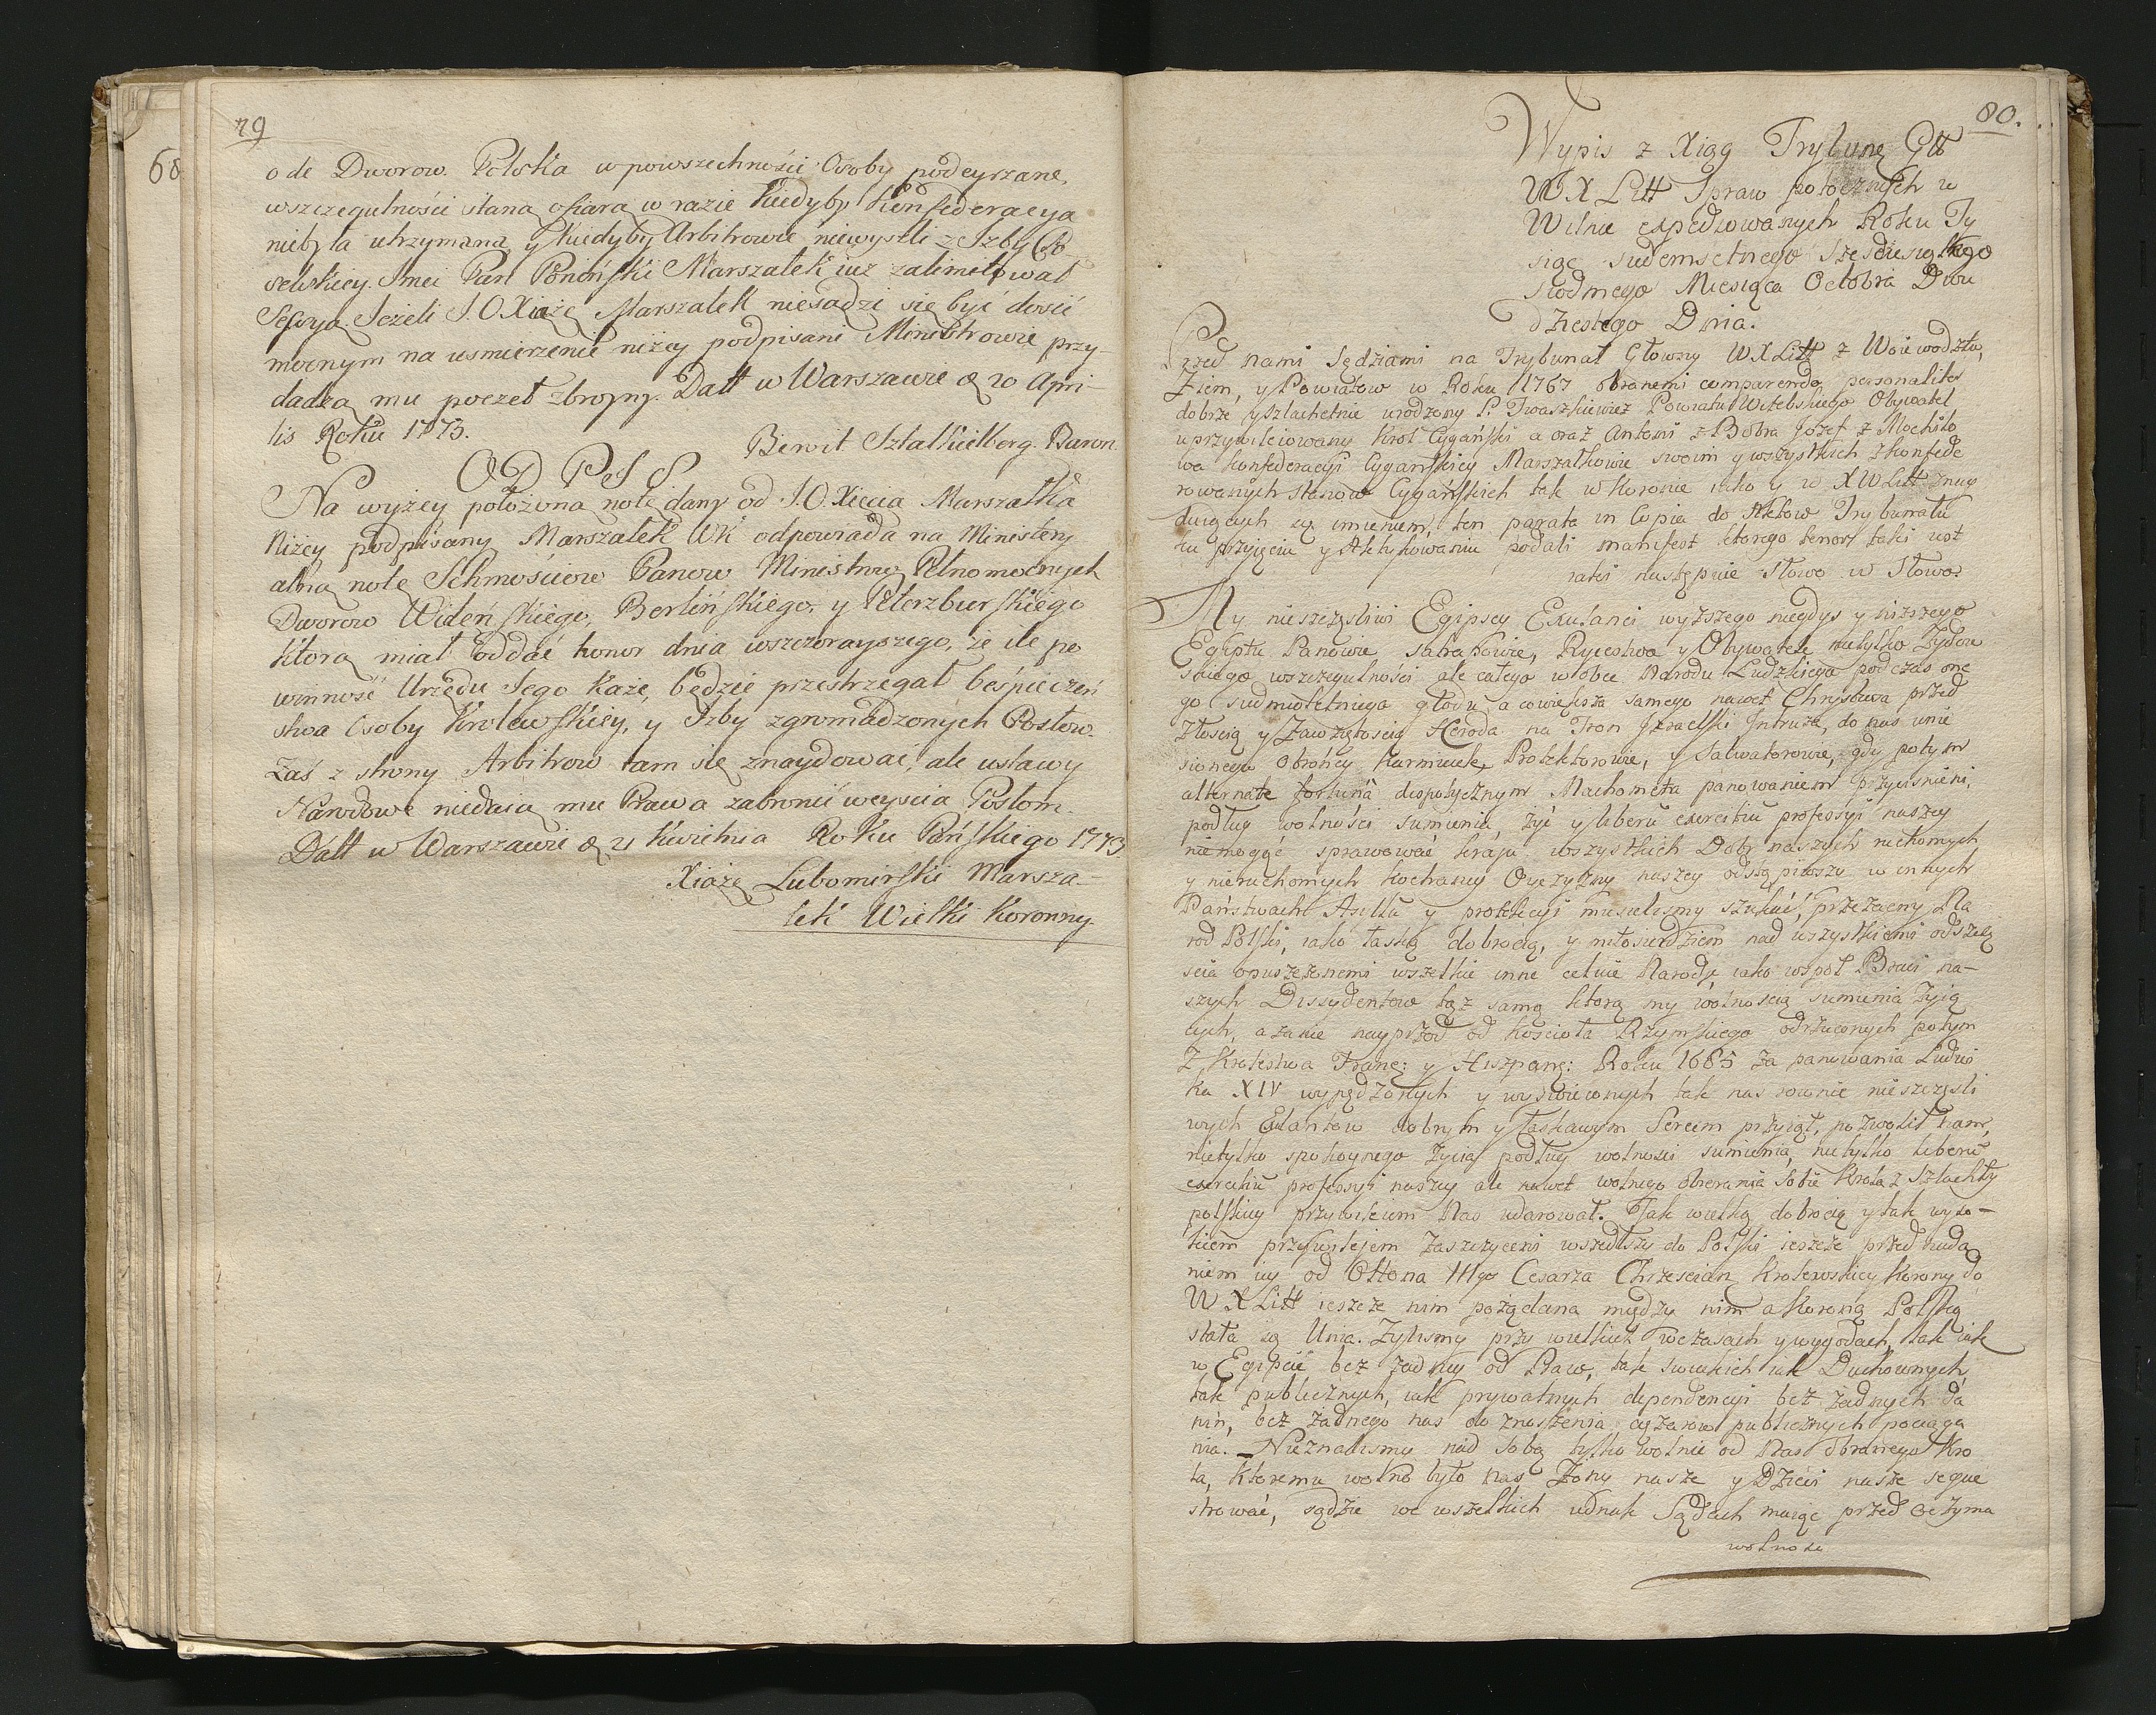 79
68
o de Dworow. Polska w powszechności Osoby podeyrzane,
wszczegulności staną ofiarą w razie kiedyby Konfederacya
niebyła utrzymana y kiedyby Arbitrowie niewyszli z Izby Po
selskiey. Jmci Pan Poniński Marszałek iuż zalimitował
Sessyą. Jeżeli J.O.Xiąże Marszałek niesądzi się być dosić
mocnym na usmierzenie niżey podpisani Ministrowie przy-
dadzą mu poczet zbroyny. Datt w Warszawie d 20 Apri-
lis Roku 1773.
Benoit Sztakielberg. Baron
ODPIS
Na wyżey położoną notę daną od J.O.Xięcia Marszałka
Niżey podpisany Marszałek WK odpowiada na Ministery
alną notę Ichmościow Panow Ministrow Pełnomocnych
Dworow Wideńskiego, Berlińskiego, y Peterzburskiego
ktorą miał oddać honor dnia wczorayszego, że ile po
winność Urzędu Jego każe, będzie przestrzegał bespieczeń
stwa Osoby Krolewskiey, y Izby zgromadzonych Posłow.
Zaś z strony Arbitrow tam się znaydować, ale ustawy
Narodowe niedaią mu Prawa zabronić weyscia Posłom.
Datt w Warszawie d 21 Kwietnia Roku Pańskiego 1773
Xiąże Lubomirski Marsza-
łek Wielki Koronny.
80.
Wypis z Xiąg Trybunę Gtt
W X Litt Spraw potocznych w
Wilnie expedyowanych Roku Ty
siąc siudemsetnego Szescdziesiątego
siodmego Miesiąca Octobra Dwu
dziestego Dnia.
Przed nami Sędziami na Trybunał Głowny WXLitt z Woiewodztw,
Ziem, y Powiatow w Roku 1767 obranemi comparendo personaliter
dobrze y szlachetnie urodzony P. Iwaszkiewicz Powiatu Witebskiego Obywatel
uprzywileiowany Krol Cygański a oraz Antoni z Bobra Jozef z Mochiło
wa Konfederacyi Cygańskiey Marszałkowie swoim y wszystkich Skonfede
rowanych stanow Cygańskich tak w Koronie iako y w XWLitt znay
duiących się imieniem, ten parata in Copia do Aktow Trybunału
ku przyięciu y Aktykowaniu podali manifest ktorego tenor taki iest
następuie słowo w słowo.
My nieszczęśliwi Egipscy Exulanci wyższego niegdys y niższego
Egiptu Panowie Satrapowie, Rycestwa y Obywatele nietylko Żydow
skiego wszczegulności ale całego wobec Narodu Ludzkiego podczas one
go siudmioletniego głodu a cowieksza samego nawet Chrystusa przed
złością y zawziętością Heroda na Tron Izraelski Intruza, do nas unie
sionego Obrońcy Karmiciele, Protektorowie, y Salwatorowie, gdy potym
alternatę fortuna despotycznym Machometa panowaniem przycisnieni,
podług wolności sumienia, żyć y liberū exercitiū professyi naszey
niemogąc sprawować kraju wszystkich Dobr naszych ruchomych
y nieruchomych kochaney Oyczyzny naszey odstąpiwszy w innych
Państwach Asyllū y protekcyi musielismy szukać, przezacny Na
rod Polski, iako łaską dobrocią, y miłosierdziem nad wszystkiemi od szczę
scia opuszczonemi wszelkie inne celuie Narody, iako wspoł Braci na-
szych Dissydentow tąż samą ktorą my wolnoscią sumienia żyią
cych, a zanie nayprzod od Kościoła Rzymskiego odrzuconych potym
z Krolestwa Franc: y Hiszpanę: Roku 1685 za panowania Ludwi
ka XIV wypędzonych y wyswieconych tak nas rownie nieszczęsli
wych Exulantow dobrym y łaskawym Sercem przyiął, pozwolił nam,
nietylko spokoynego życia podług wolności sumienia, nietylko liberū
exercitiū professyi naszey ale nawet wolnego obierania sobie Krola z Szlachty
polskiey przywileiem Nas udarował. Tak wielką dobrocią y tak wyso-
kiem przywilejem zaszczyceni wszedłszy do Polski ieszcze przed nada
niem iey od Ottona IIIgo Cesarza Chrzescian Krolewskiey Korony do
W X Litt ieszcze nim pożądana między nim a Koroną Polską
stała się Unia. Żylismy przy wielkich wczasach y wygodach, tak iak
w Egipcie bez żadney od Praw, tak swieckich iak Duchownych,
tak publicznych, iak prywatnych dependencyi bez żadnych da
nin, bez żadnego nas do znoszenia ciężarow publicznych pociąga
nia. Nieznalismy nad sobą tylko wolnie od Nas obranego Kro
la, ktoremu wolno było nas Żony nasze y Dzieci nasze seque
strować, sądzić we wszelkich iednak Sądach maiąc przed oczyma
wolnosc